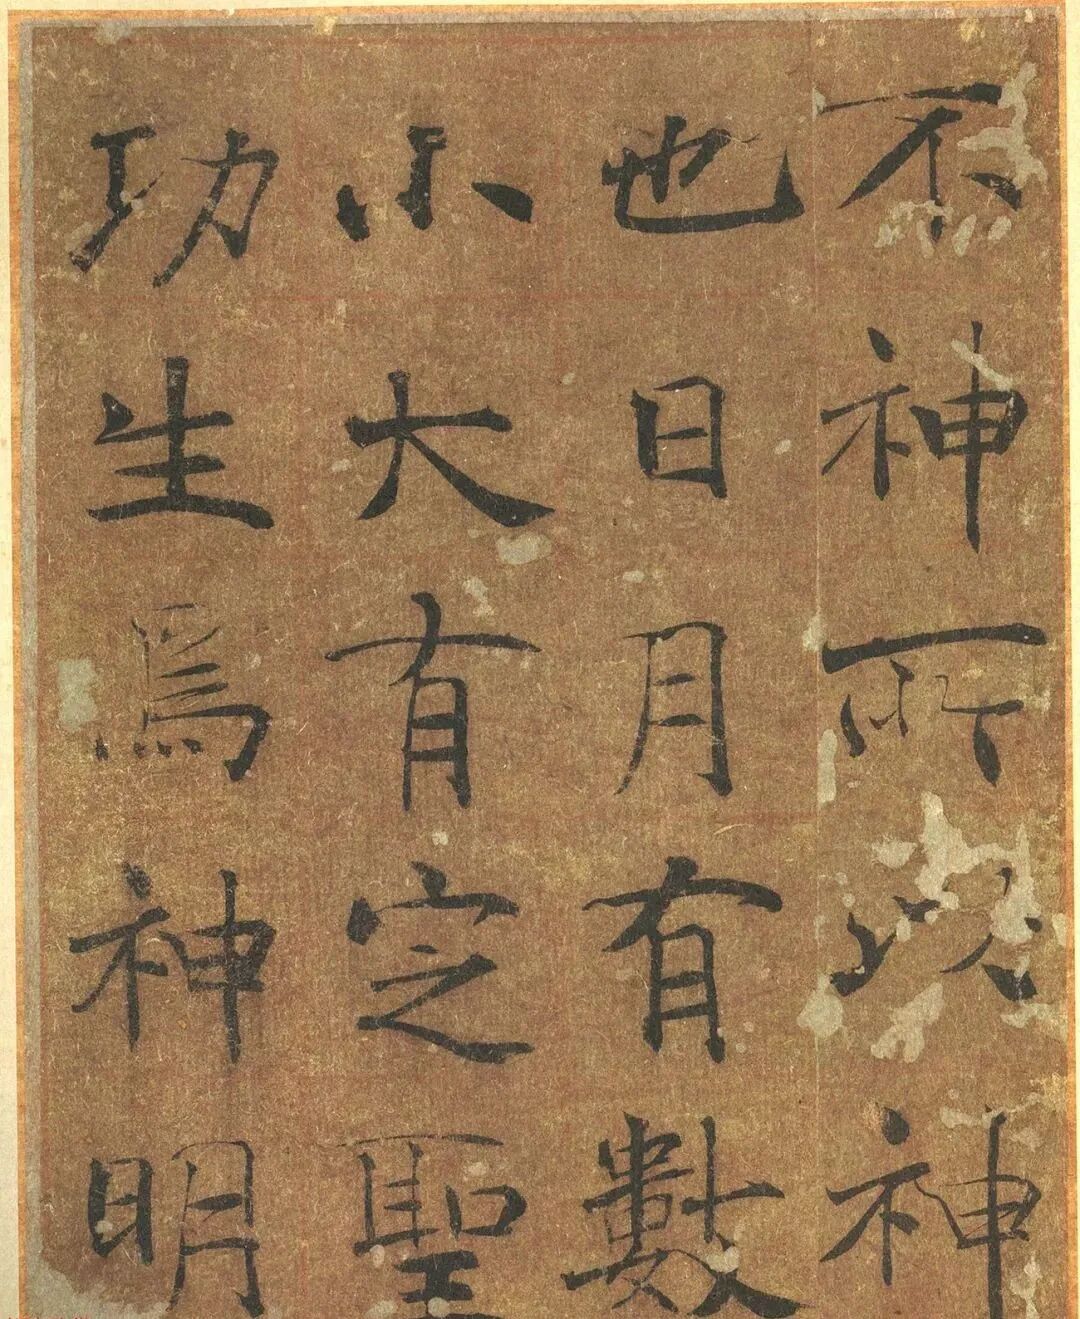 不神所以神
也日月有數
小大有定聖
功生爲神明